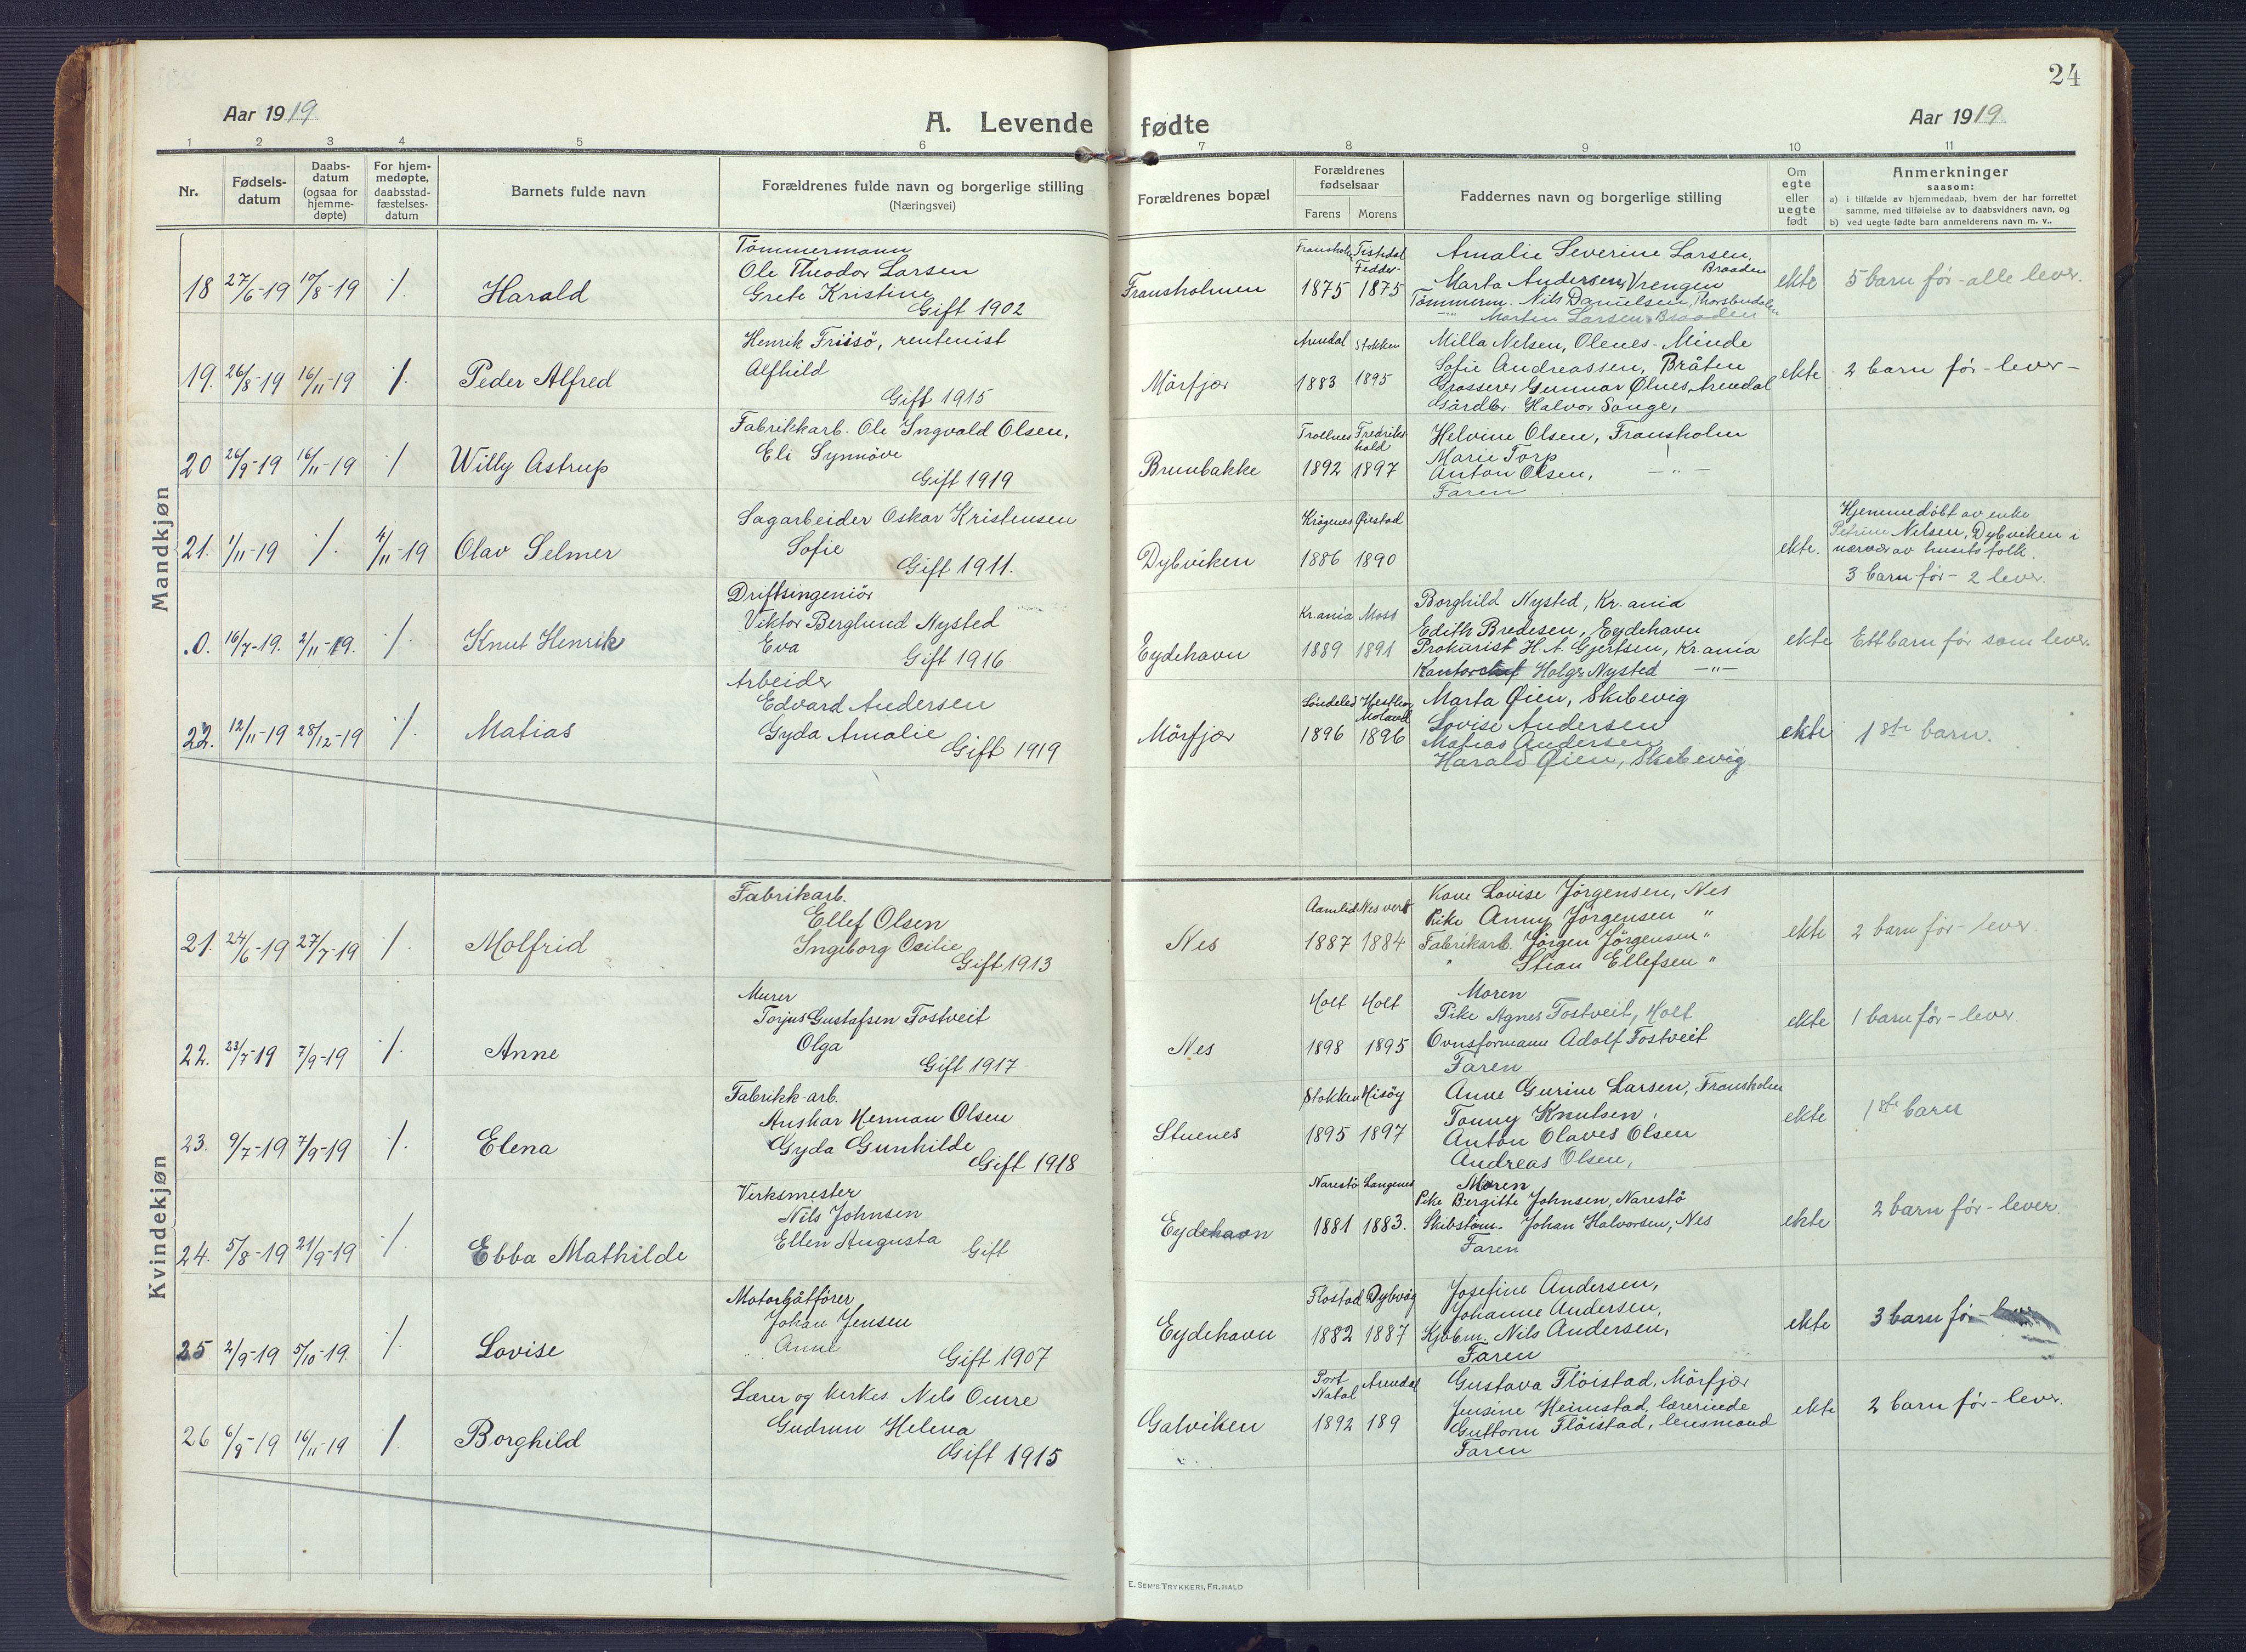 24
Aar 1919
A. Levende fødte
Aar 1919
1 2 3 4 5 6 7 8 9 10 11
Nr.
Fødsels-
datum
Daabs-
datum
(ogsaa for
hjemme-
døpte)
For hjem-
medøpte,
daabsstad-
fæstelses-
datum
Barnets fulde navn
Forældrenes fulde navn og borgerlige stilling
(Næringsvei)
Forældrenes bopæl
Forældrenes
fødselsaar
Farens
Morens
Faddernes navn og borgerlige stilling
Om
egte
eller
uegte
født
Anmerkninger
saasom:
a) i tilfælde av hjemmedaab, hvem der har forrettet
samme, med tilføielse av to daabsvidners navn, og
b) ved uegte fødte barn anmelderens navn m. v..
Mandkjøn
18 27/6-19 10/8-19 /. Harald
Tömmermann
Ole Theodor Larsen
Grete Kristine
Gift 1902
Fransholmen
Fransholm 1875
Fedder- 1875
Amalie Severine Larsen,
Braaden
Marta Andersen, Vrengen
Tömmerm. Nils Danielsen,
Martin Larsen Braaden
ekte
5 barn før - alle lever.
19. 26/8-19 16/11-19 /. Peder Alfred
Henrik Friisö, rentenist
Alfhild
Gift 1915
Mörfjær
Arendal 1883
Stokken 1895
Milla Nelsen, Olenes-Minde
Sofie Andreassen, Bråten
Grosserer Gunnar Ølnes, Arendal
Gårdbr. Halvor Sange,
ekte
2 barn før - lever -
20 26/9-19 16/11-19 /. Willy Astrup
Fabrikkarb. Ole Ingvald Olsen,
Eli Synnöve
Gift 1919
Brunbakke
Trollnes 1892
Fredriks-
hald 1897
Helvine Olsen, Fransholm
Marie Torp
Anton Olsen, - " -
Faren
21. 1/11-19 /. 4/11-19 Olav Selmer
Sagarbeider Oskar Kristensen
Sofie
Gift 1911.
Dybviken
Krögenes 1886
Øiestad 1890
ekte.
Hjemmedöbt av enke
Petrine Nilsen, Dybviken i
nærvær av husets folk.
3 barn før - 2 lever.
.0. 16/7-19. 2/11-19. /. Knut Henrik
Driftsingeniör
Viktor Berglund Nysted
Eva
Gift 1916
Eydehavn
Kr.ania 1889
Moss 1891
Borghild Nysted, Kr.ania
Edith Bredesen, Eydehavn
Prokurist H. A. Gjertsen, Kr.ania
Kontorchef Holger Nysted - " -
ekte
Ett barn før som lever.
22. 12/11-19 28/12-19 /. Matias
Arbeider
Edvard Andersen
Gyda Amalie
Gift 1919
Mörfjær
Söndeled 1896
1896
Marta Øien, Skibevig
Lovise Andersen
Matias Andersen
Harald Øien, Skibevig
ekte
1ste barn.
Kvindekjøn
21. 24/6-19 27/7-19 /. Molfrid
Fabrikarb.
Ellef Olsen
Ingeborg Osilie
Gift 1913
Nes
Aamlid 1887
Nes verk 1884
Kone Lovise Jörgensen, Nes
Pike Anny Jörgensen "
Fabrikarb. Jörgen Jörgensen "
" Stian Ellefsen "
ekte
2 barn før - lever.
22. 23/7-19 7/9-19 /. Anne
Murer
Torjus Gustafsen Fostveit
Olga
Gift 1917
Nes
Holt 1898
Holt 1895
Moren
Pike Agnes Fostveit, Holt
Ovnsformann Adolf Fostveit
Faren
ekte
1 barn før - lever.
23. 9/7-19 7/9-19 /. Elena
Fabrikk-arb.
Anskar Herman Olsen
Gyda Gunhilde
Gift 1918
Stuenes
Stokken 1895
Hisöy 1897
Anne Gurine Larsen, Fransholm
Tonny Knutsen,
Anton Olaves Olsen
Andreas Olsen,
ekte
1ste barn
24. 5/8-19 21/9-19 /. Ebba Mathilde
Verksmester
Nils Johnsen
Ellen Augusta
Gift
Eydehavn
Narestö 1881
Langenes 1883.
Moren
Pike Bergitte Johnsen, Narestö
Skibstöm. Johan Halvorsen, Nes
Faren
ekte
2 barn før - lever.
25 2/9-19 5/10-19. /. Lovise
Motorbåtförer
Johan Jensen
Anne
Gift 1907
Eydehavn
Flostad 1882
Dybvåg 1887
Josefine Andersen,
Johanne Andersen,
Kjøbm. Nils Andersen,
Faren
ekte
3 barn før -
26 6/9-19 16/11-19 /. Borghild
Lærer og kirkes. Nils Omre
Gudrun Helena
Gift 1915
Galviken
Port
Natal 1892
Arendal 189
Gustava Flöistad, Mörfjær
Jensine Heimstad, lærerinde
Guttorm Flöistad, lensmand
Faren
ekte
2 barn før - lever.
E. SEM'S TRYKKERI, FR.HALD